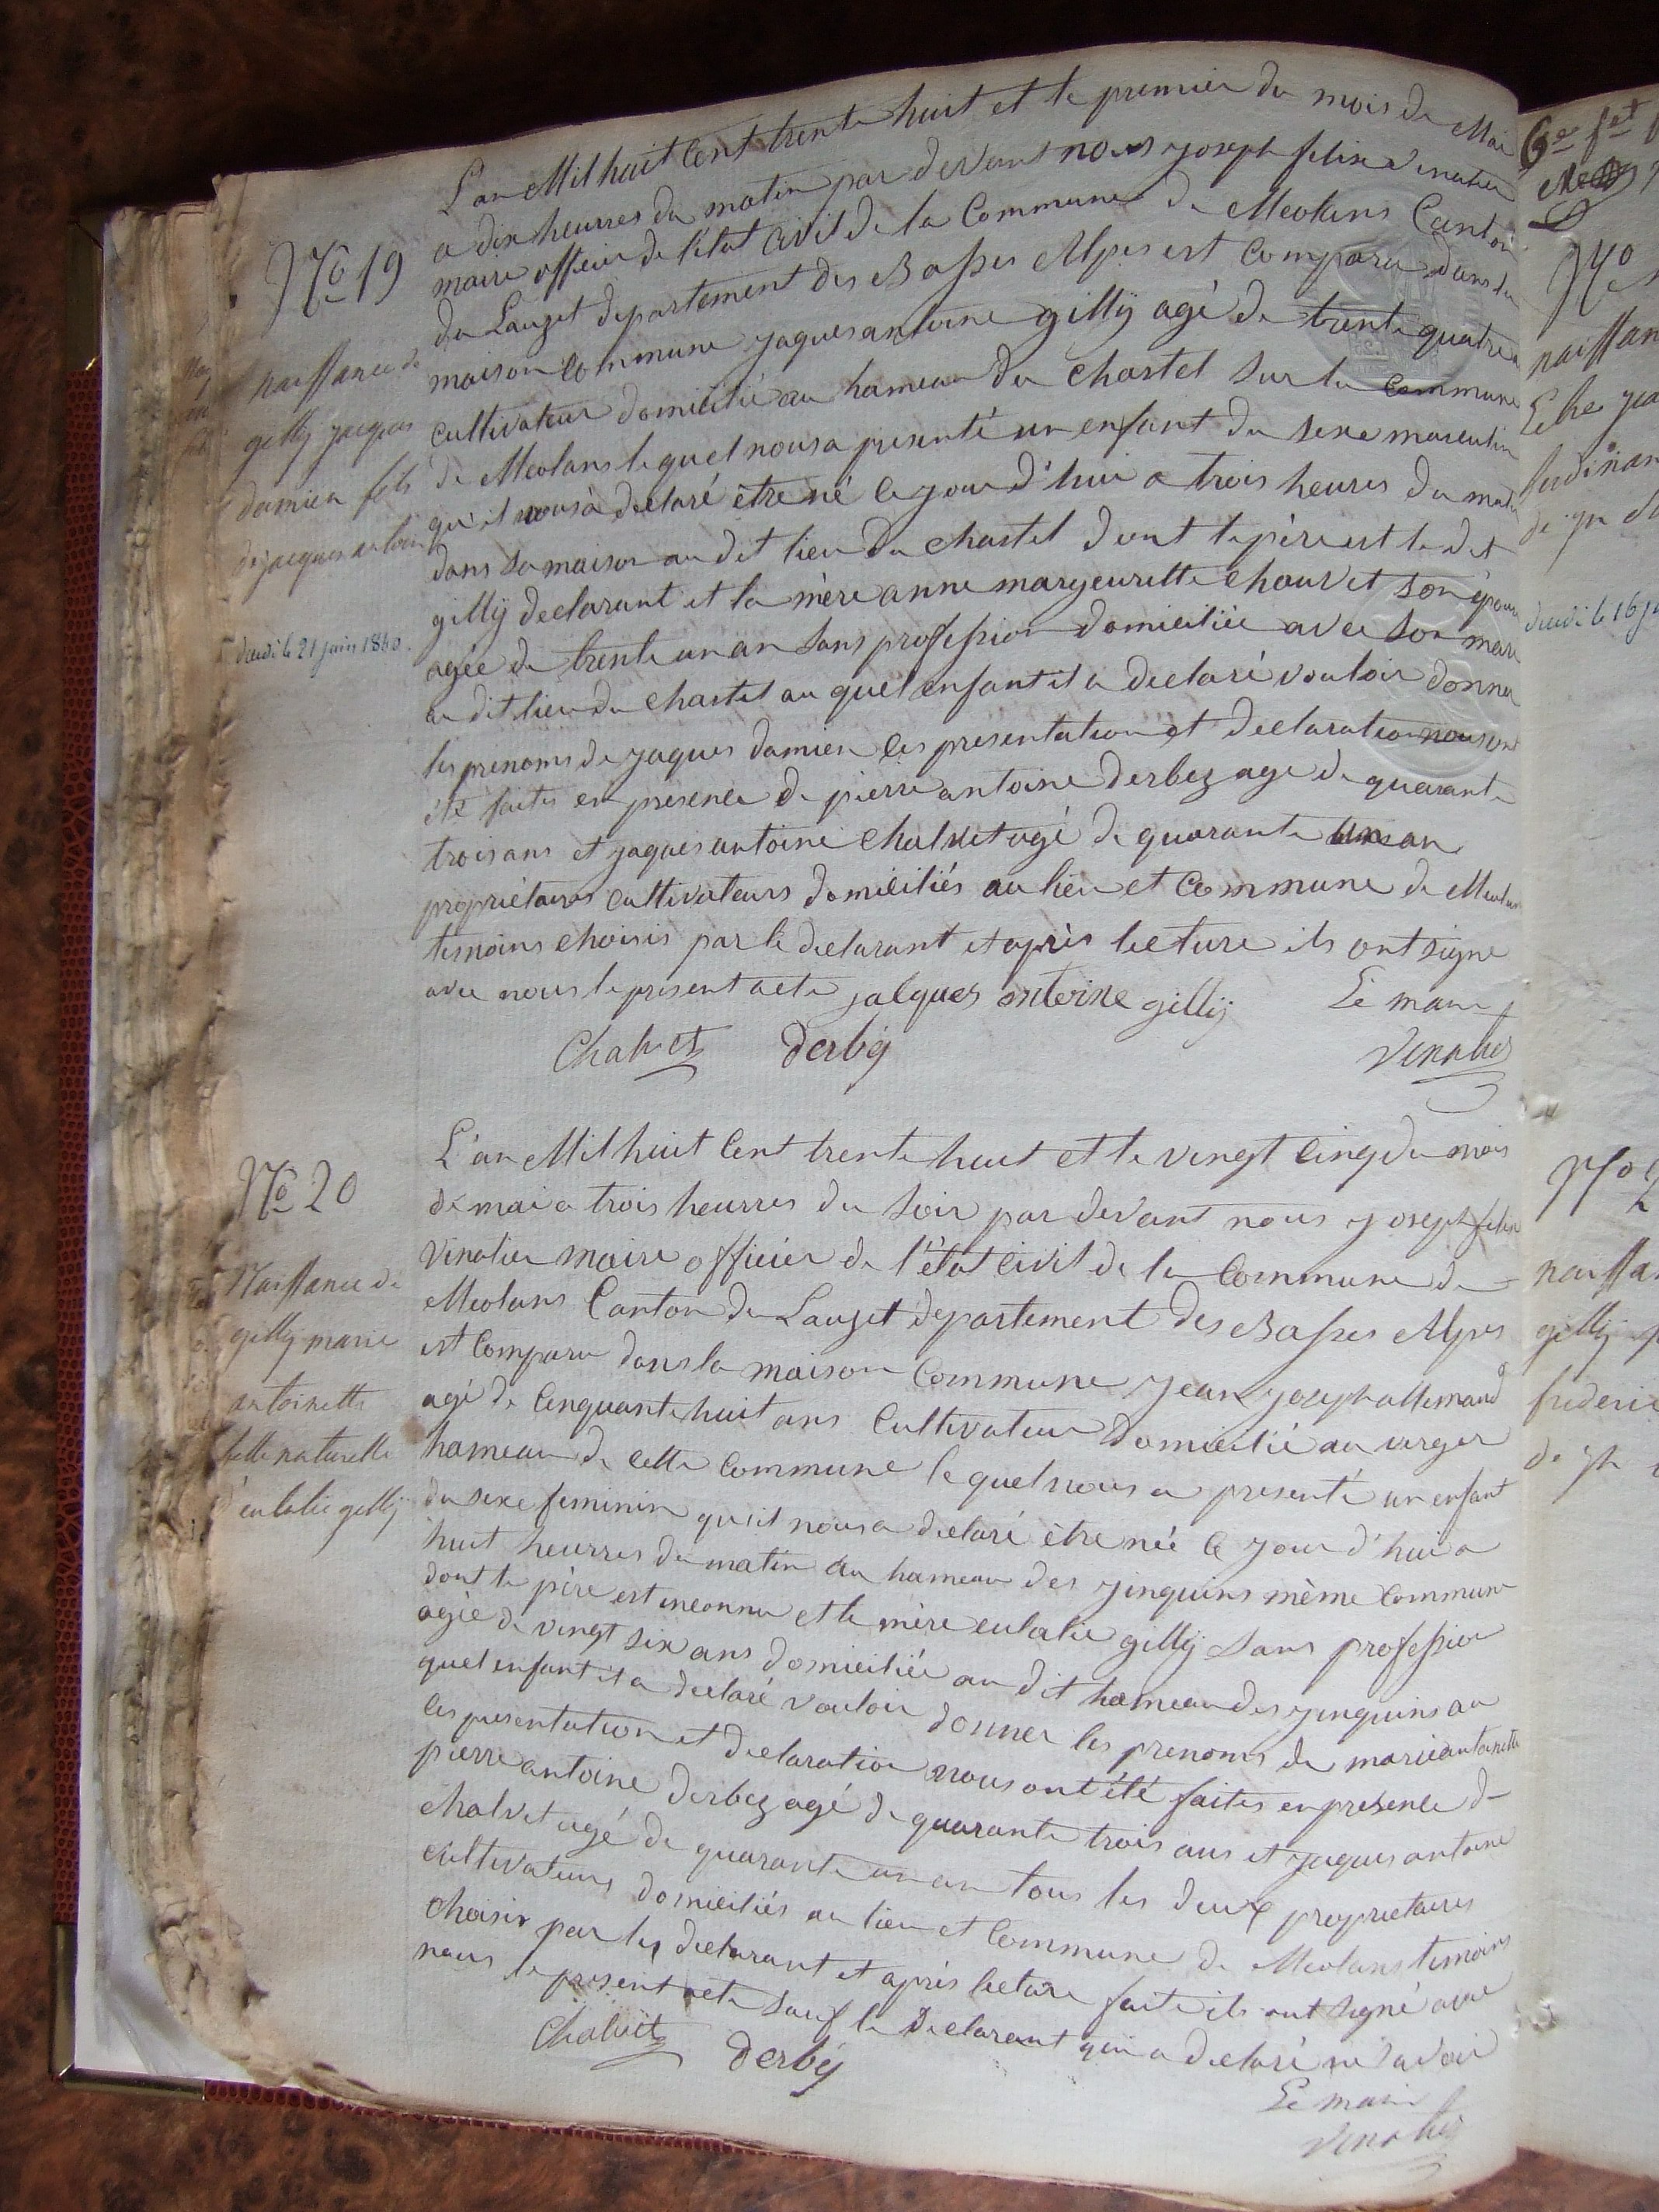 L'an Mil huit Cent trente huit et le premier du mois de Mai
a dix heurres du matin par devant nous yoseph felix vinatier
maire officier de l'état Civil de la Commune de Meolans Canton
du Lauzet departement des Basses Alpes est Comparu dans la
maison Commune yaques antoine gillÿ agé de trente quatre
cultivateur domicilié au hameau du Chastel sur la commune
de Meolans le quel nous a presenté un enfant du sexe masculin
qu'il nous a declaré être né ce jour d'hui a trois heures du matin
dans sa maison au dit lieu du chastel dont le père est le dit
gillÿ declarant et la mère anne margeurette Chauvet son épouse
agée de trente un an sans profession domiciliée avec son mari
au dit lieu du Chastel au quel enfant il a declaré vouloir donner
les prenoms de yaques damien les presentation et declaration nous ont
été faites en presence de pierre antoine derbez age de quarante
trois ans et yaques antoine Chalvet agé de quarante un an
propriètaires cultivateurs domiciliés au lieu et Commune de Meolans
temoins choisis par le declarant et après lecture ils ont signe
avec nous le present acte jalques anteine gillÿ Le maire
Chalvet derbéz vinatier
N° 19
naissance de
gillÿ jacques
damien fils
de jacques antoine
décédé le 21 juin 1860.
L'an Mil huit Cent trente huit et le vingt cinq du mois
de mai a trois heurres du soir par devant nous yoseph felix
vinatier maire officier de l'état Civil de la Commune de
Meolans Canton du Lauzet departement des Basses Alpes
est Comparu dans la maison Commune yean yoseph allemand
agé de Cinquante huit ans Cultivateur domicilié au verger
hameau de cette Commune le quel nous a presenté un enfant
du sexe feminin qu'il nous a declaré être née ce jour d'hui a
huit heurres du matin au hameau des yinquins même Commune
dont le père est inconnu et la mère eulalie gillÿ sans profession
agée de vingt six ans domiciliée au dit hameau des yinquins au
quel enfant il a declaré vouloir donner les prenoms de marie antoinette
les presentation et declaration nous ont été faites en presence de
pierre antoine derbez agé de quarante trois ans et yaques antoine
chalvet agé de quarante un an tous les deux propriétaires
cultivateurs domiciliés au lieu et Commune de Meolans temoins
choisis par les declarant et après lecture faite ils ont signé avec
nous le présent acte sauf le declarant qui a declaré ne savoir
Chalvet derbéz Le maire
vinatier
N° 20
Naissance de
gillÿ marie
antoinette
fille naturelle
d'eulalie gillÿ
N°
naissan
décédé le 16
N°
naissa
gillÿ
frederic